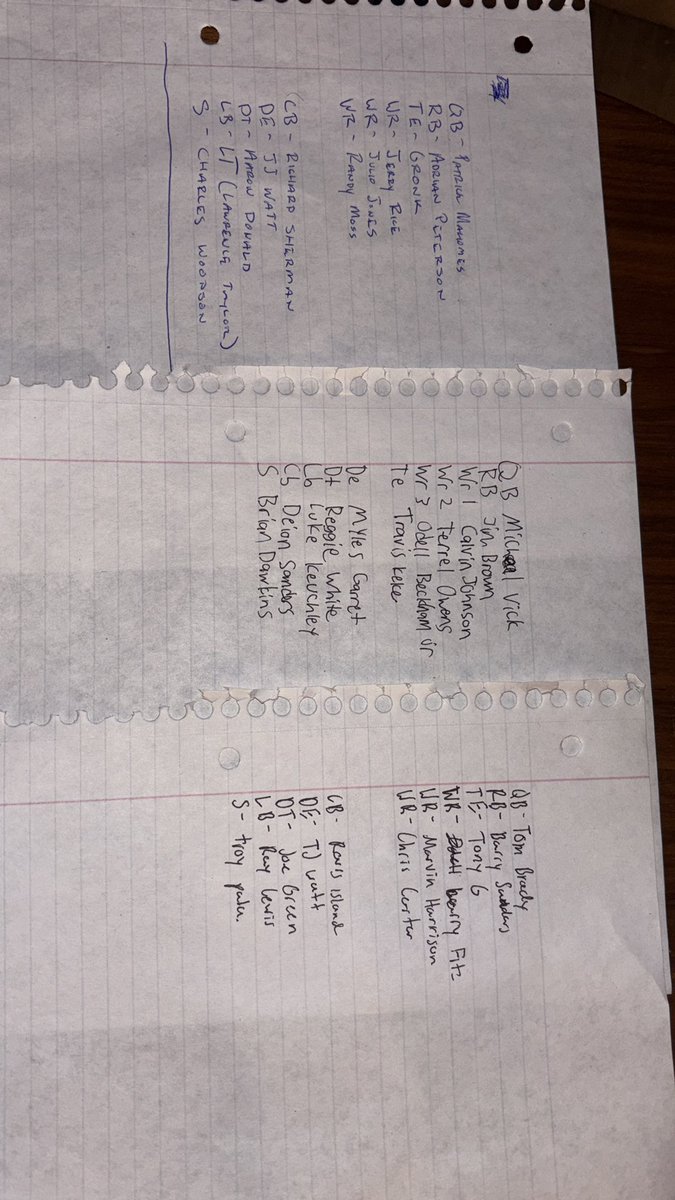 QB - PATRICK MAHOMES
RB - ADRIAN PETERSON
TE - GRONK
WR - JERRY RICE
WR - JULIO JONES
WR - RANDY MOSS
CB - RICHARD SHERMAN
DE - JJ WATT
DT - AARON DONALD
LB - LT (LAWRENCE TAYLOR)
S - CHARLES WOODSON
QB Michael Vick
RB Jim Brown
Wr 1 Calvin Johnson
Wr 2 Terrel Owens
Wr 3 Odell Beckham Jr
Te Travis Kelce
De Myles Garret
Dt Reggie White
Lb Luke Keuchley
Cb Deion Sanders
S Brian Dawkins
QB - Tom Brady
RB - Barry Sanders
TE - Tony G
WR - Larry Fitz
WR - Marvin Harrison
WR - Chris Carter
CB - Revis island
DE - TJ watt
DT - Joe Green
LB - Ray Lewis
S - troy